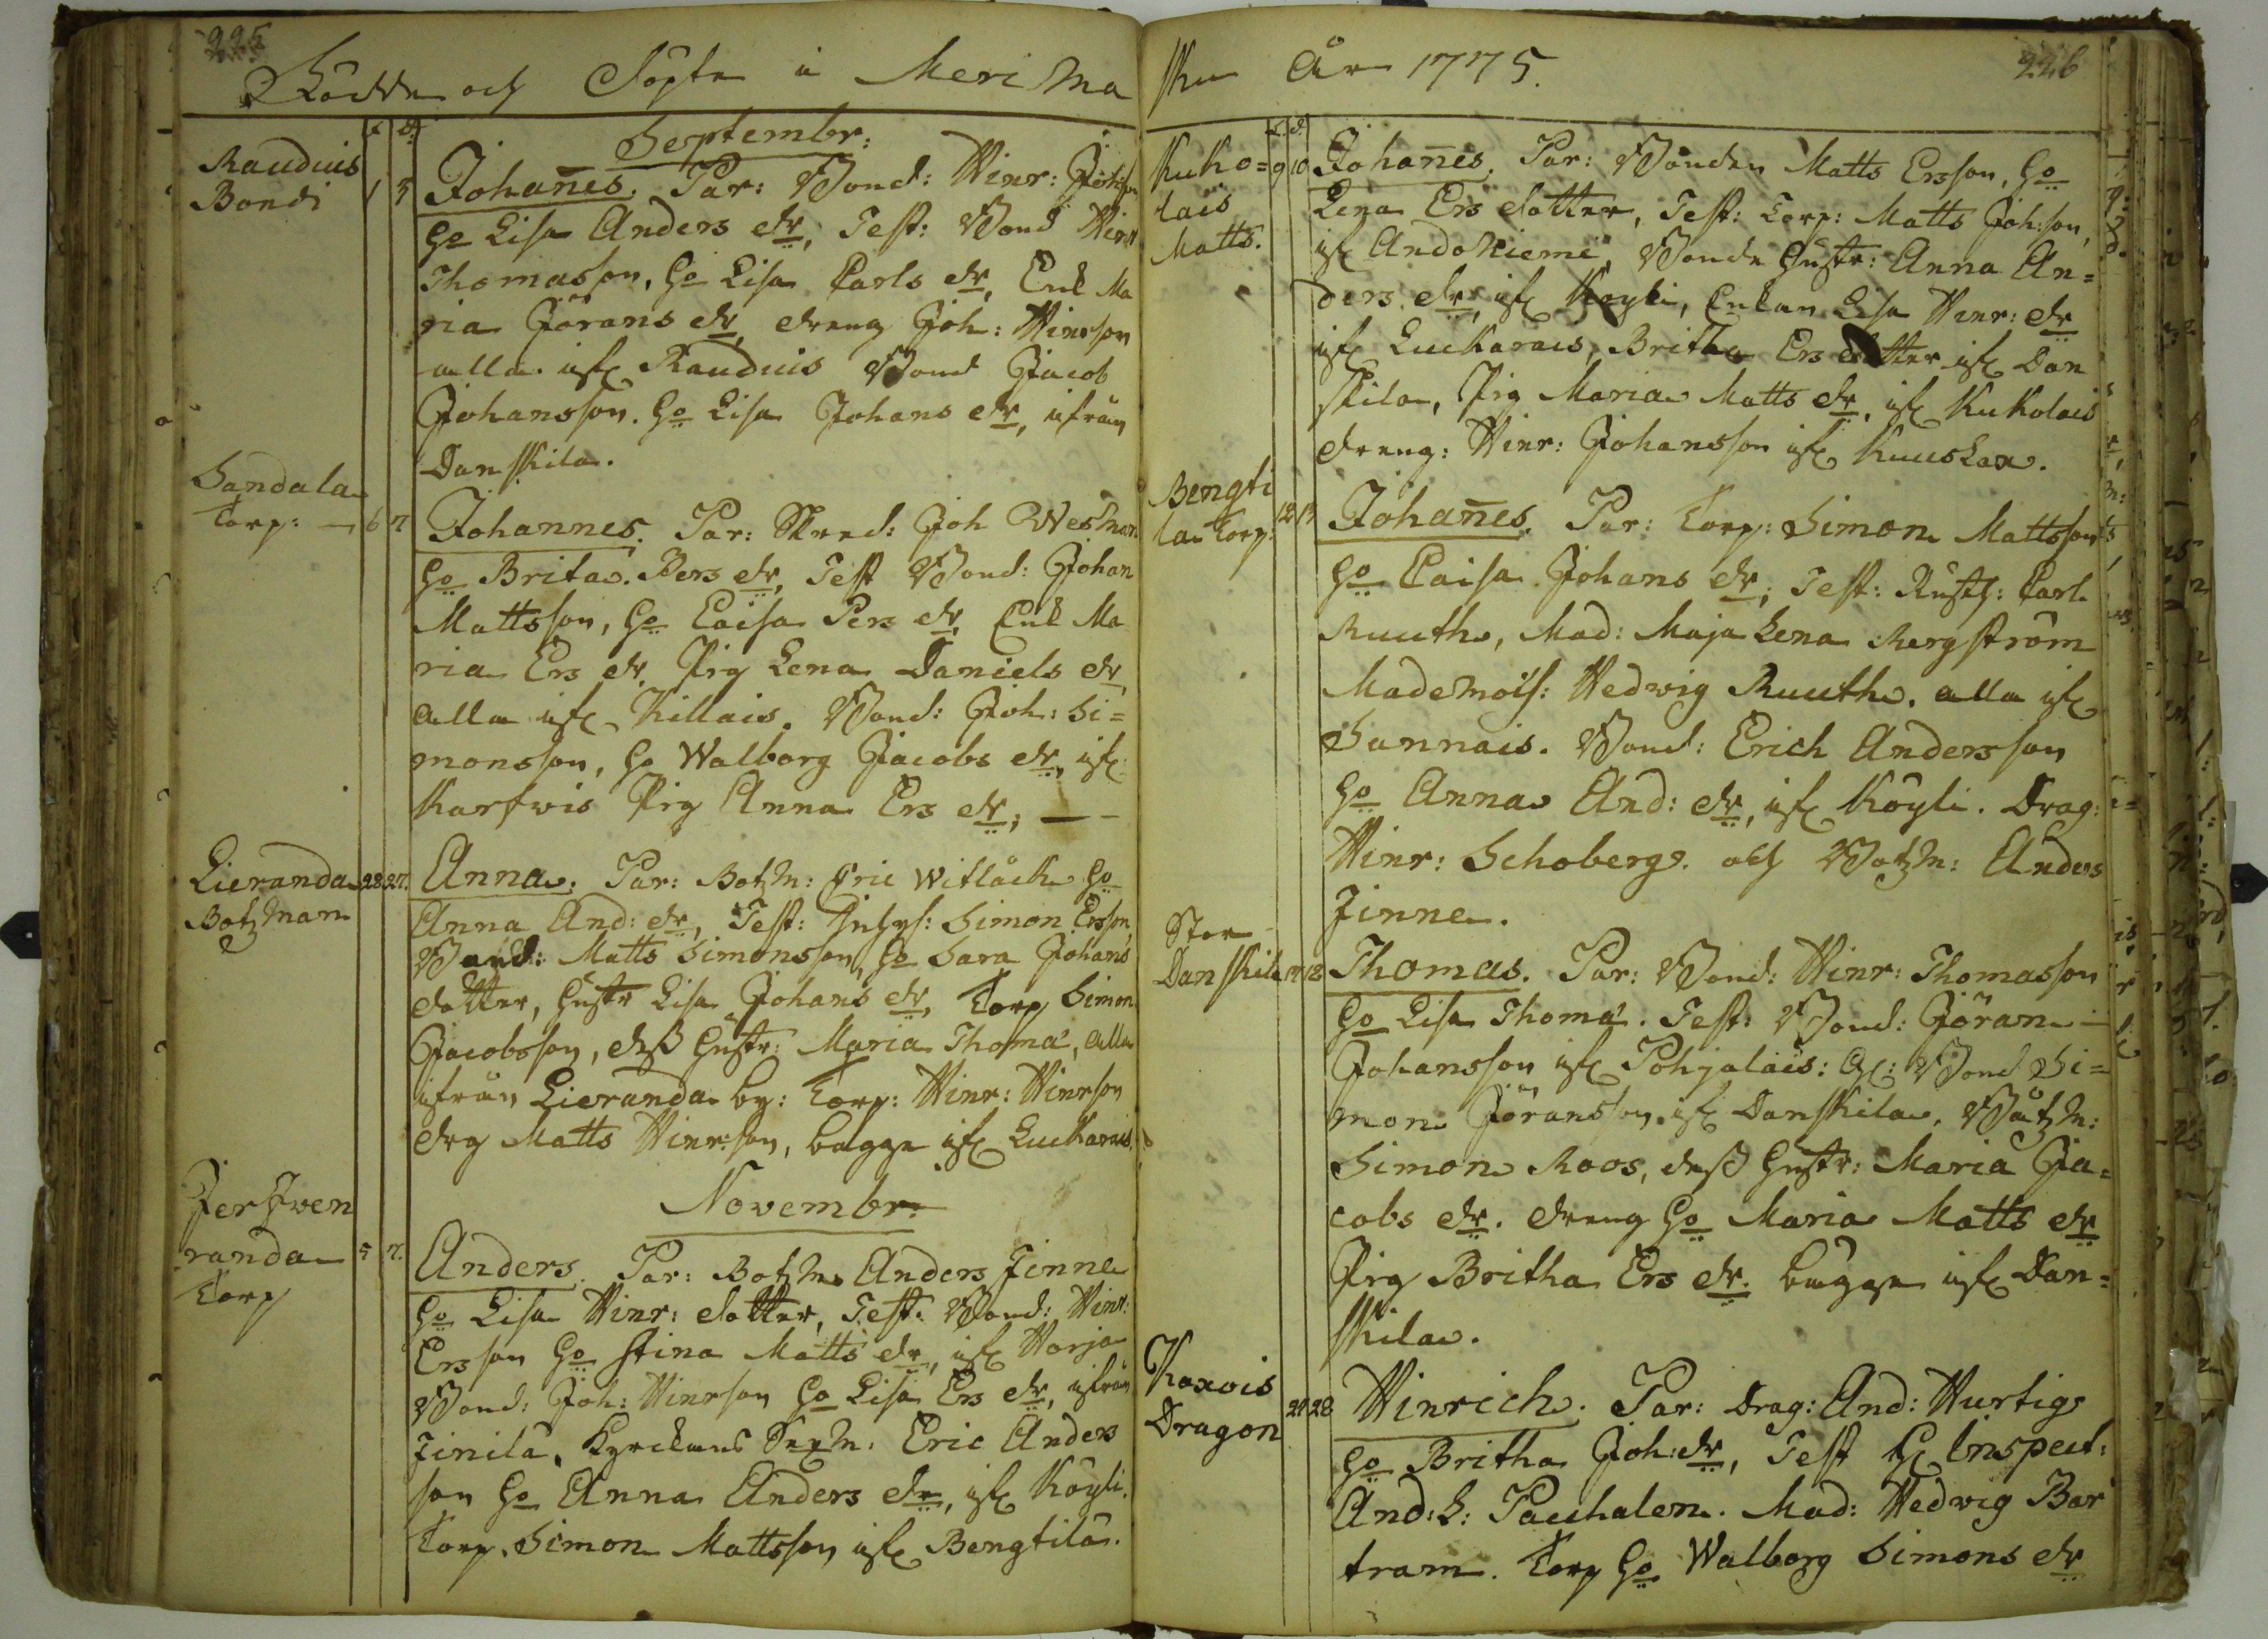 225
Födde och Döpte i Merima
f. d.
Septembr:
Rauduis
Bondi
1 3 Johan̄es. Par: Bond: Hinr: Johsson
ho Lisa Anders dr, Test: Bond Hinr
Thomasson, ho Lisa Carls dr, Enk Ma
ria Jörans dr dreng Joh: Hinrson
alla ifr Rauduis Bond Jacob
Johansson. ho Lisa Johans dr, ifrån
Danskila.
Sandala
Torp: 6 7 Johannes. Par: Joh Westman
ho Brita Pers dr, Test Bond: Johan
Mattsson, ho Caisa Pers dr, Enk Ma
ria Ers dr, Pig Lena Daniels dr
alla ifr Killais. Bond: Joh: Si=
monsson, ho Walborg Jacobs dr, ifr
Karfwis Pig Anna Ers dr;
Lieranda
Botzman
27. Anna. Par: Botzm: Eric Witlåck ho
Anna And: dr, Test: Simon Ersson,
Bond: Matts Simonsson, ho Sara Johans
dotter, hustr Lisa Johans dr, Torp Simon
Jacobsson, deß hustr: Maria Thomæ, alla
ifrån Lieranda by: Torp: Hinr: Hinrson
drg Matts Hinr:son, bägge ifr Luckarais.
Novembr:
Jerfwen
randa
Torp
5 7. Anders. Par: Botzm Anders Finne
ho Lisa Hinr: dotter, Test: Bond: Hinr:
Ersson ho Stina Matts dr, ifr Harja
Bond: Joh: Hinrson ho Lisa Ers dr, ifrån
Finilä, Kyrckans Sexm: Eric Anders
son ho Anna Anders dr, ifr Köyli.
Torp. Simon Mattsson ifr Bengtilä.
sku År 1775.
226
f. d.
Kuko=
lais
Matts.
9 10 Johan̄es. Par: Bonden Matts Ersson, ho
Lena Ers dotter, Test: Torp: Matts Joh:son,
ifr Andoniemi, Bonde hustr: Anna An=
ders dr, ifr Köyli, Enkan Lisa Hinr: dr
ifr Luckarais, Britha Ers dotter ifr Dan
skila, Pig Maria Matts dr, ifr Kukolais
dreng: Hinr: Johansson ifr Kuuslax.
Bengti
la Torp:
12 13 Johan̄es. Par: Torp: Simon Mattsson
ho Caisa Johans dr; Test: Rusth: Carl
Ruuth, Mad: Maja Lena Bergström
Mademois: Hedwig Ruuth, alla ifr
Sannais. Bond: Erich Andersson
ho Anna And: dr, ifr Köyli. Drag:
Hinr: Schoberg. och Botzm: Anders
Finne.
Stor
Danskila
17 18 Thomas. Par: Bond: Hinr: Thomasson
ho Lisa Thomæ. Test: Bond: Jöran
Johansson ifr Pohjalais: Bond Si=
mon Jöransson, ifr Danskila, Båtzm:
Simon Roos, deß hustr: Maria Ja=
cobs dr. dreng ho Maria Matts dr
Pig Britha Ers dr. bägge ifr Dan=
skila.
Koxois
Dragon
28 Hinrich. Par: Drag: And: Hurtig
ho Britha Joh:dr, Test H Inspect:
And: L: Pauhalen. Mad: Hedwig Bar
tram. Torp ho Walborg Simons dr